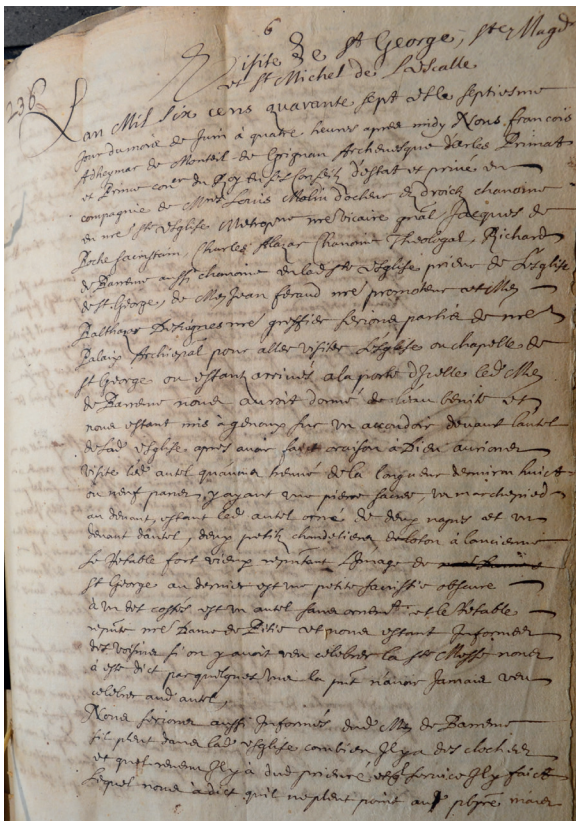 6
Visite de St George, Ste Magd
et St Michel de Lescalle
236
Lan Mil six cens quarante sept et le septiesme
Jour du mois de Juin à quatre heures apres midy Nous francois
Adheymar de Monteil de Grignan Archevesque darles Primat
et Prince conr du Roy en ses conseilz destat et privé en
compagnie de Mres Louis Molin docteur ez droictz chanoine
en nre Ste Esglise Metropne nre vicaire gnal Jacques de
Rochefainct Charles chanoine Theologal, Richard
de Barreme aussi chanoine en lad ste Esglise prieur de Lesglise
de St George, de Me Jean feraud nre promoteur et Me
Balthazar nre greffier serions partis de nre
Palaix Archiepal pour aller visiter Lesglise ou chapelle de
St George ou estant arrivés a la porte dicelle led Me
de Barreme nous auroit donné de leau benite et
nous estant mis à genoux sur un accoudoir devant lautel
de lad Esglise apres avoir faict oraison à Dieu aurions
visité led autel de la largueur denviron huict
ou neuf panes, y ayant une piere sacree, un marchepied
au devant, estant led autel orné de deux napes et un
devant dautel, deux petitz chandeliers de loton à lancienne
Le Retable fort vieux reputant Limage de
St George au dernier est une petite sacristie obscure
à un des costés est un autel sans ornemt et le Retable
repnte nre Dame de Pitié et nous estant Informés
des voisins si on y avoit veu celebrer la ste Messe nous
à esté dict par quelques uns navoir Jamais veu
celebrer aud autel,
Nous serions aussi Informés dud Me de Barreme
sil pleut dans lad Esglise combien Il y a des cloches
et quel revenu Il y à dud prieure et quel service Il y faict
Lequel nous à dict quil ne pleut point